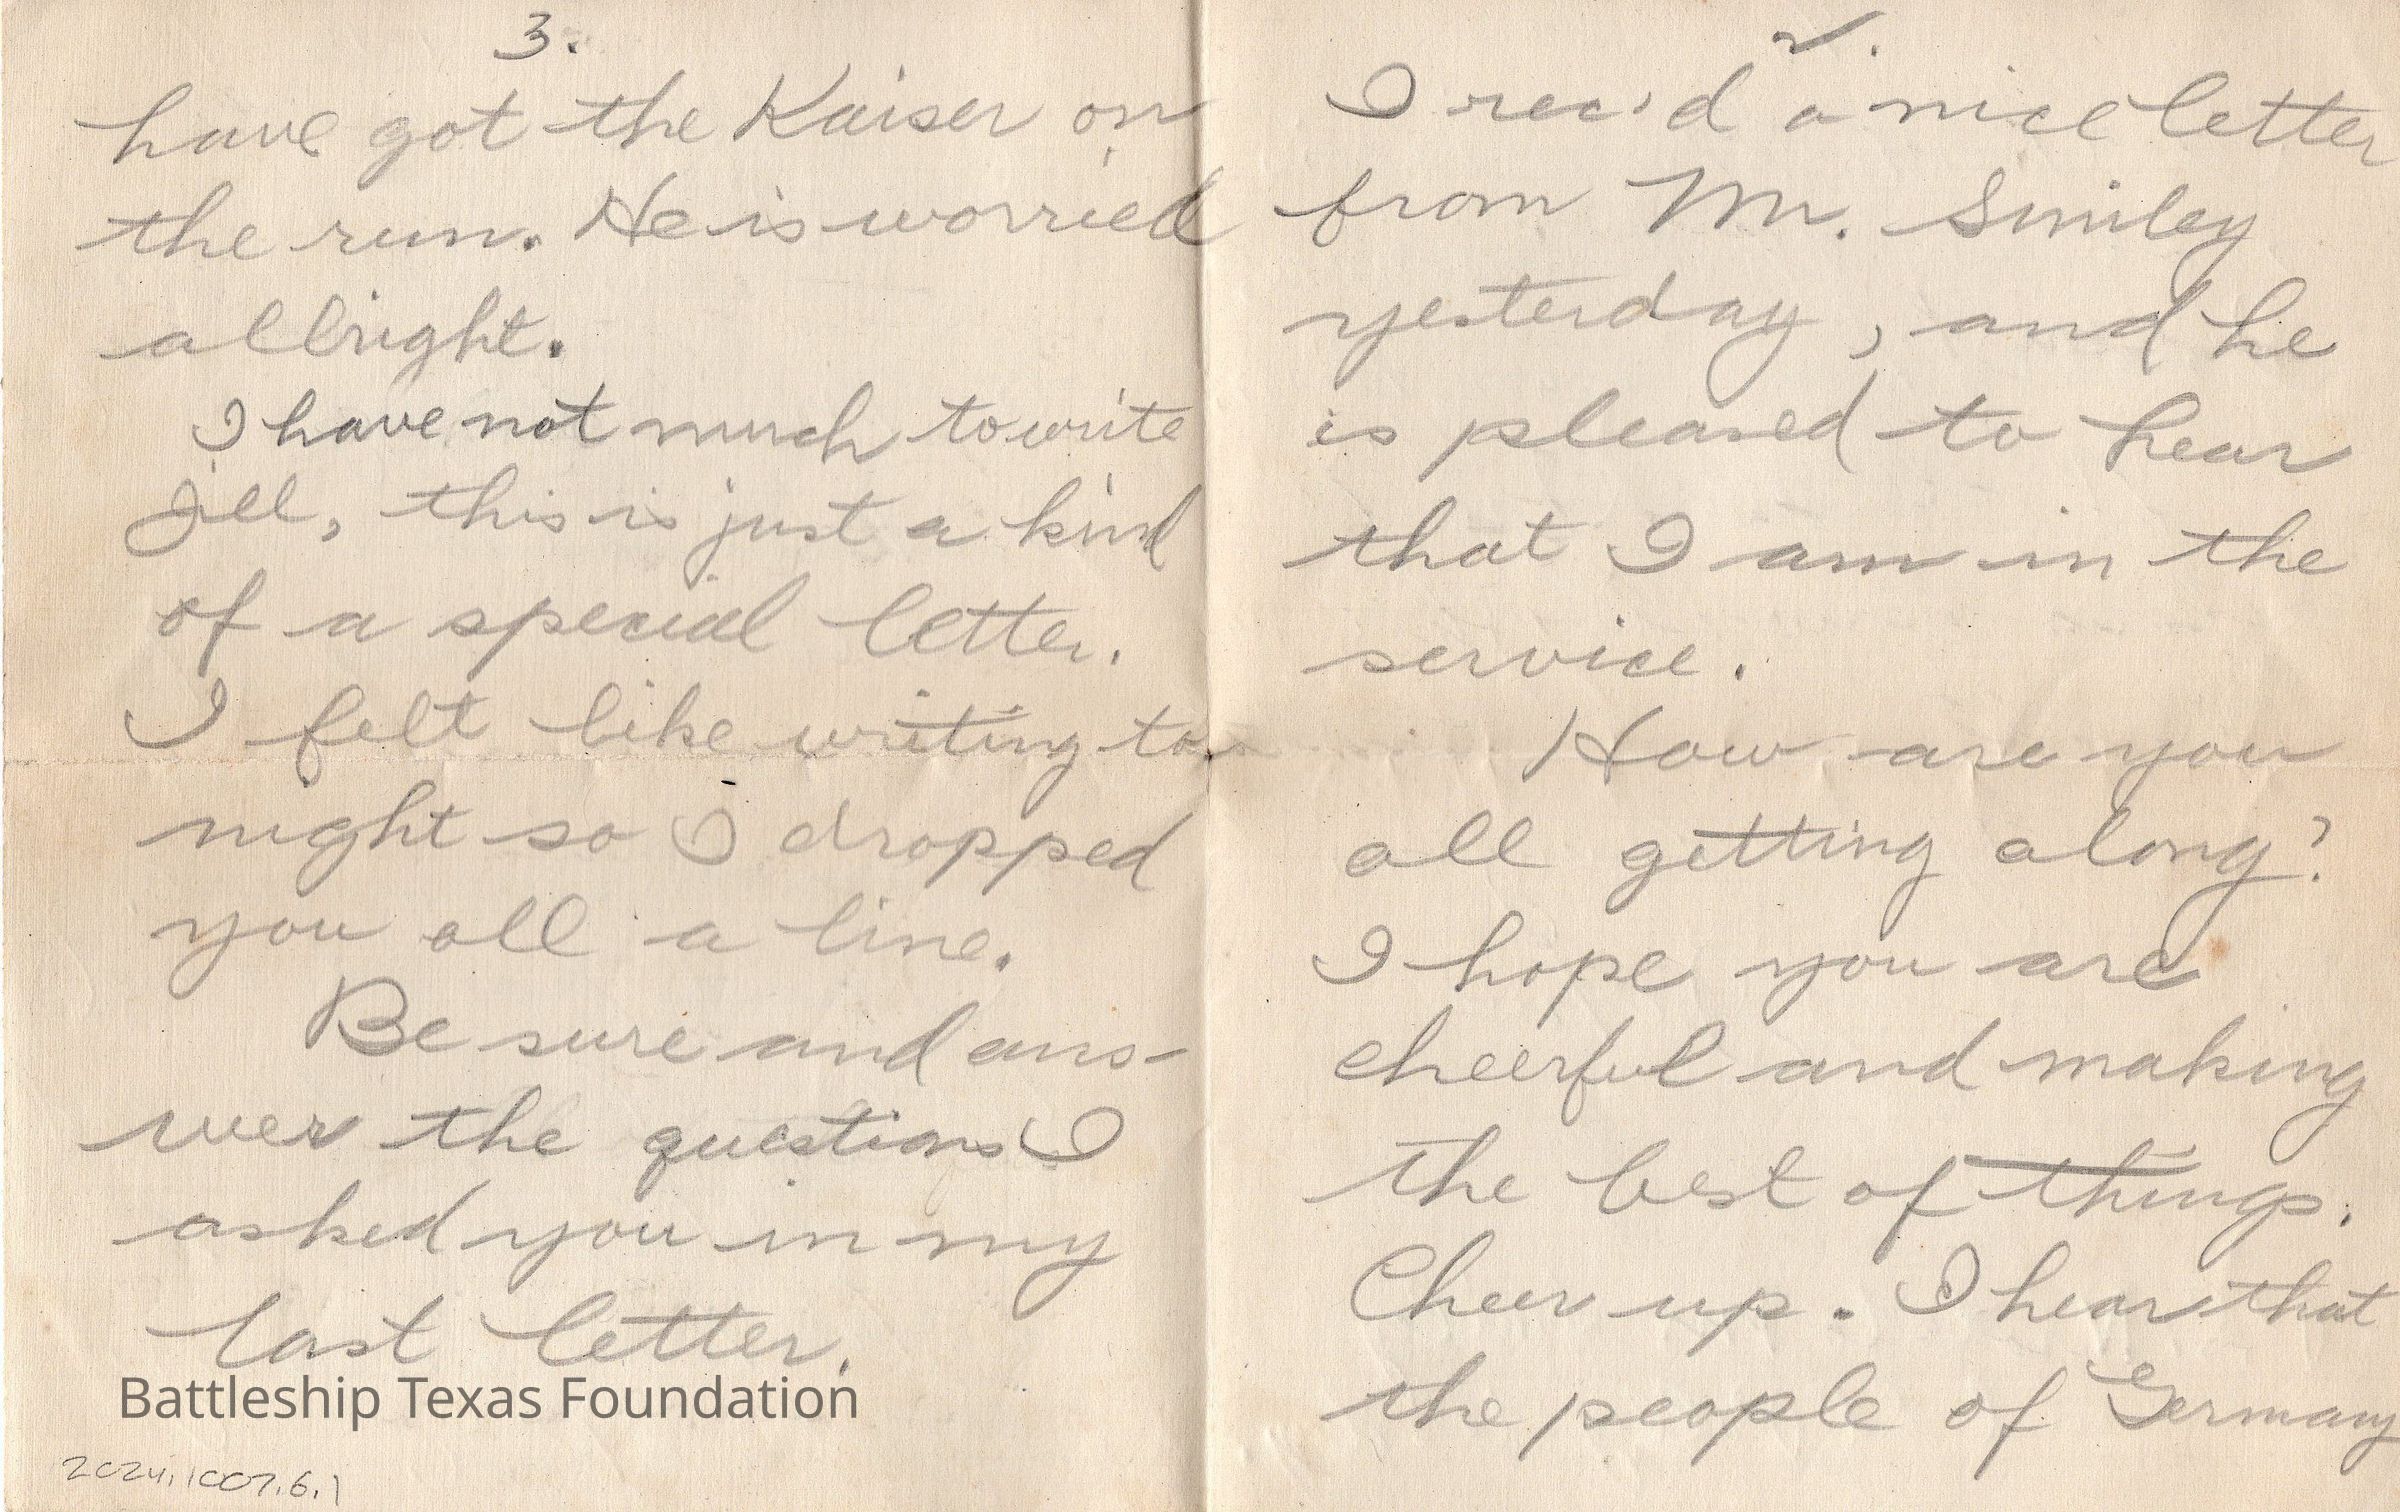 2.
I rec'd a nice letter
from Mr. Smiley
yesterday, and he
is pleased to hear
that I am in the
service.
How are you
all getting along?
I hope you are
cheerful and making
the best of things.
Cheer up. I hear that
the people of Germany
3.
have got the Kaiser on
the run. He is worried
allright.
I have not much to write
Jill, this is just a kind
of a special letter.
I felt like writing to-
night so I dropped
you all a line.
Be sure and ans-
wer the questions I
asked you in my
last letter.
Battleship Texas Foundation
2024.1007.6.1